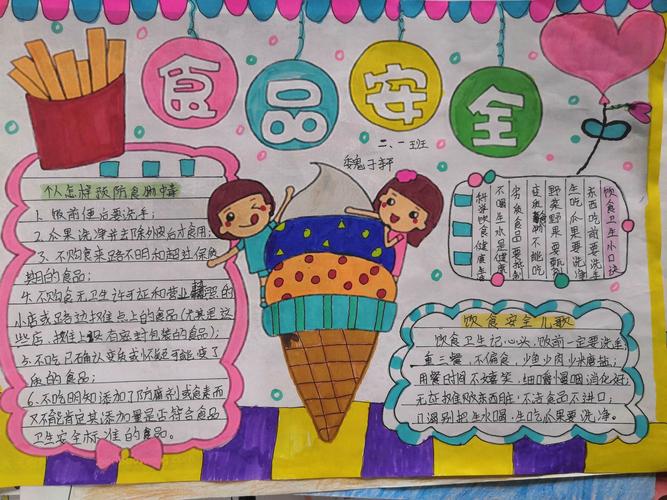 食品安全
二、一班
魏子轩
个人怎样预防食物中毒
1、饭前便后要洗手；
2、瓜果洗净并去除外皮才食用；
3、不购食来路不明和超过保质
期的食品；
4、不购食无卫生许可证和营业的
小店或路边摊点上的食品（尤其是这
些店，摊上没有密封包装的食品）；
5、不吃已确认变质或怀疑可能变了
质的食品；
6、不吃明知添加了防腐剂或色素而
又不能肯定其添加量是否符合食品
卫生安全标准的食品。
饮食卫生小口诀
东西吃前要洗手
生吃瓜果要洗净
野菜野果要甄别
变质不挑吃
劣质食品要抵制
不喝生水是健康
科学饮食健康
饮食安全儿歌
饮食卫生记心头，饭前一定要洗手，
鱼三餐，不偏食，少鱼少肉少米
用餐时间不嬉笑，细嚼慢咽消化好；
无证摊贩东西脏，不洁食品不进口；
口渴别把生水喝，生吃瓜果要洗净。